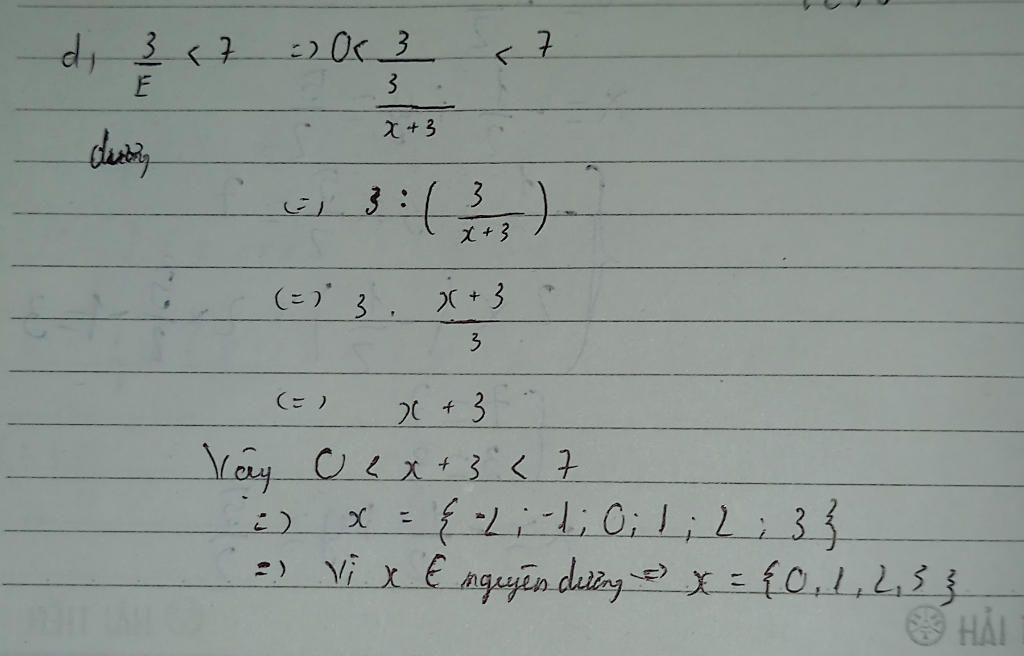 d, 3/E < 7 => 0 < 3/(3/(x+3)) < 7
dương
<=> 3 : (3/(x+3))
<=> 3 . (x+3)/3
<=> x + 3
Vậy 0 < x + 3 < 7
=> x = {-2; -1; 0; 1; 2; 3}
=> Vì x E nguyên dương => x = {0, 1, 2, 3}
HẢI